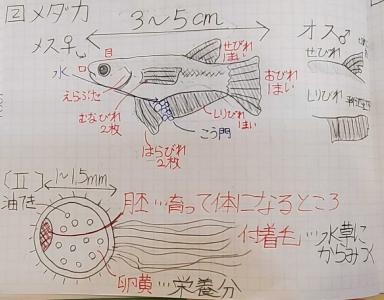 ② メダカ
3〜5cm
メス♀
目
口
水
えらぶた
むなびれ
2枚
はらびれ
2枚
こう門
せびれ
1まい
おびれ
1まい
しりびれ
1まい
オス♂
せびれ
しりびれ
(Ⅱ)
1〜1.5mm
油てき
胚…育って体になるところ
付着毛…水草に
からみつく
卵黄…栄養分